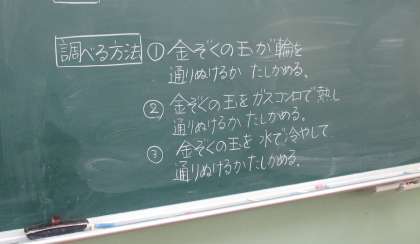 調べる方法 ① 金ぞくの玉が輪を
通りぬけるか たしかめる。
② 金ぞくの玉をガスコンロで熱し
通りぬけるか、たしかめる。
③ 金ぞくの玉を水で冷やして
通りぬけるかたしかめる。